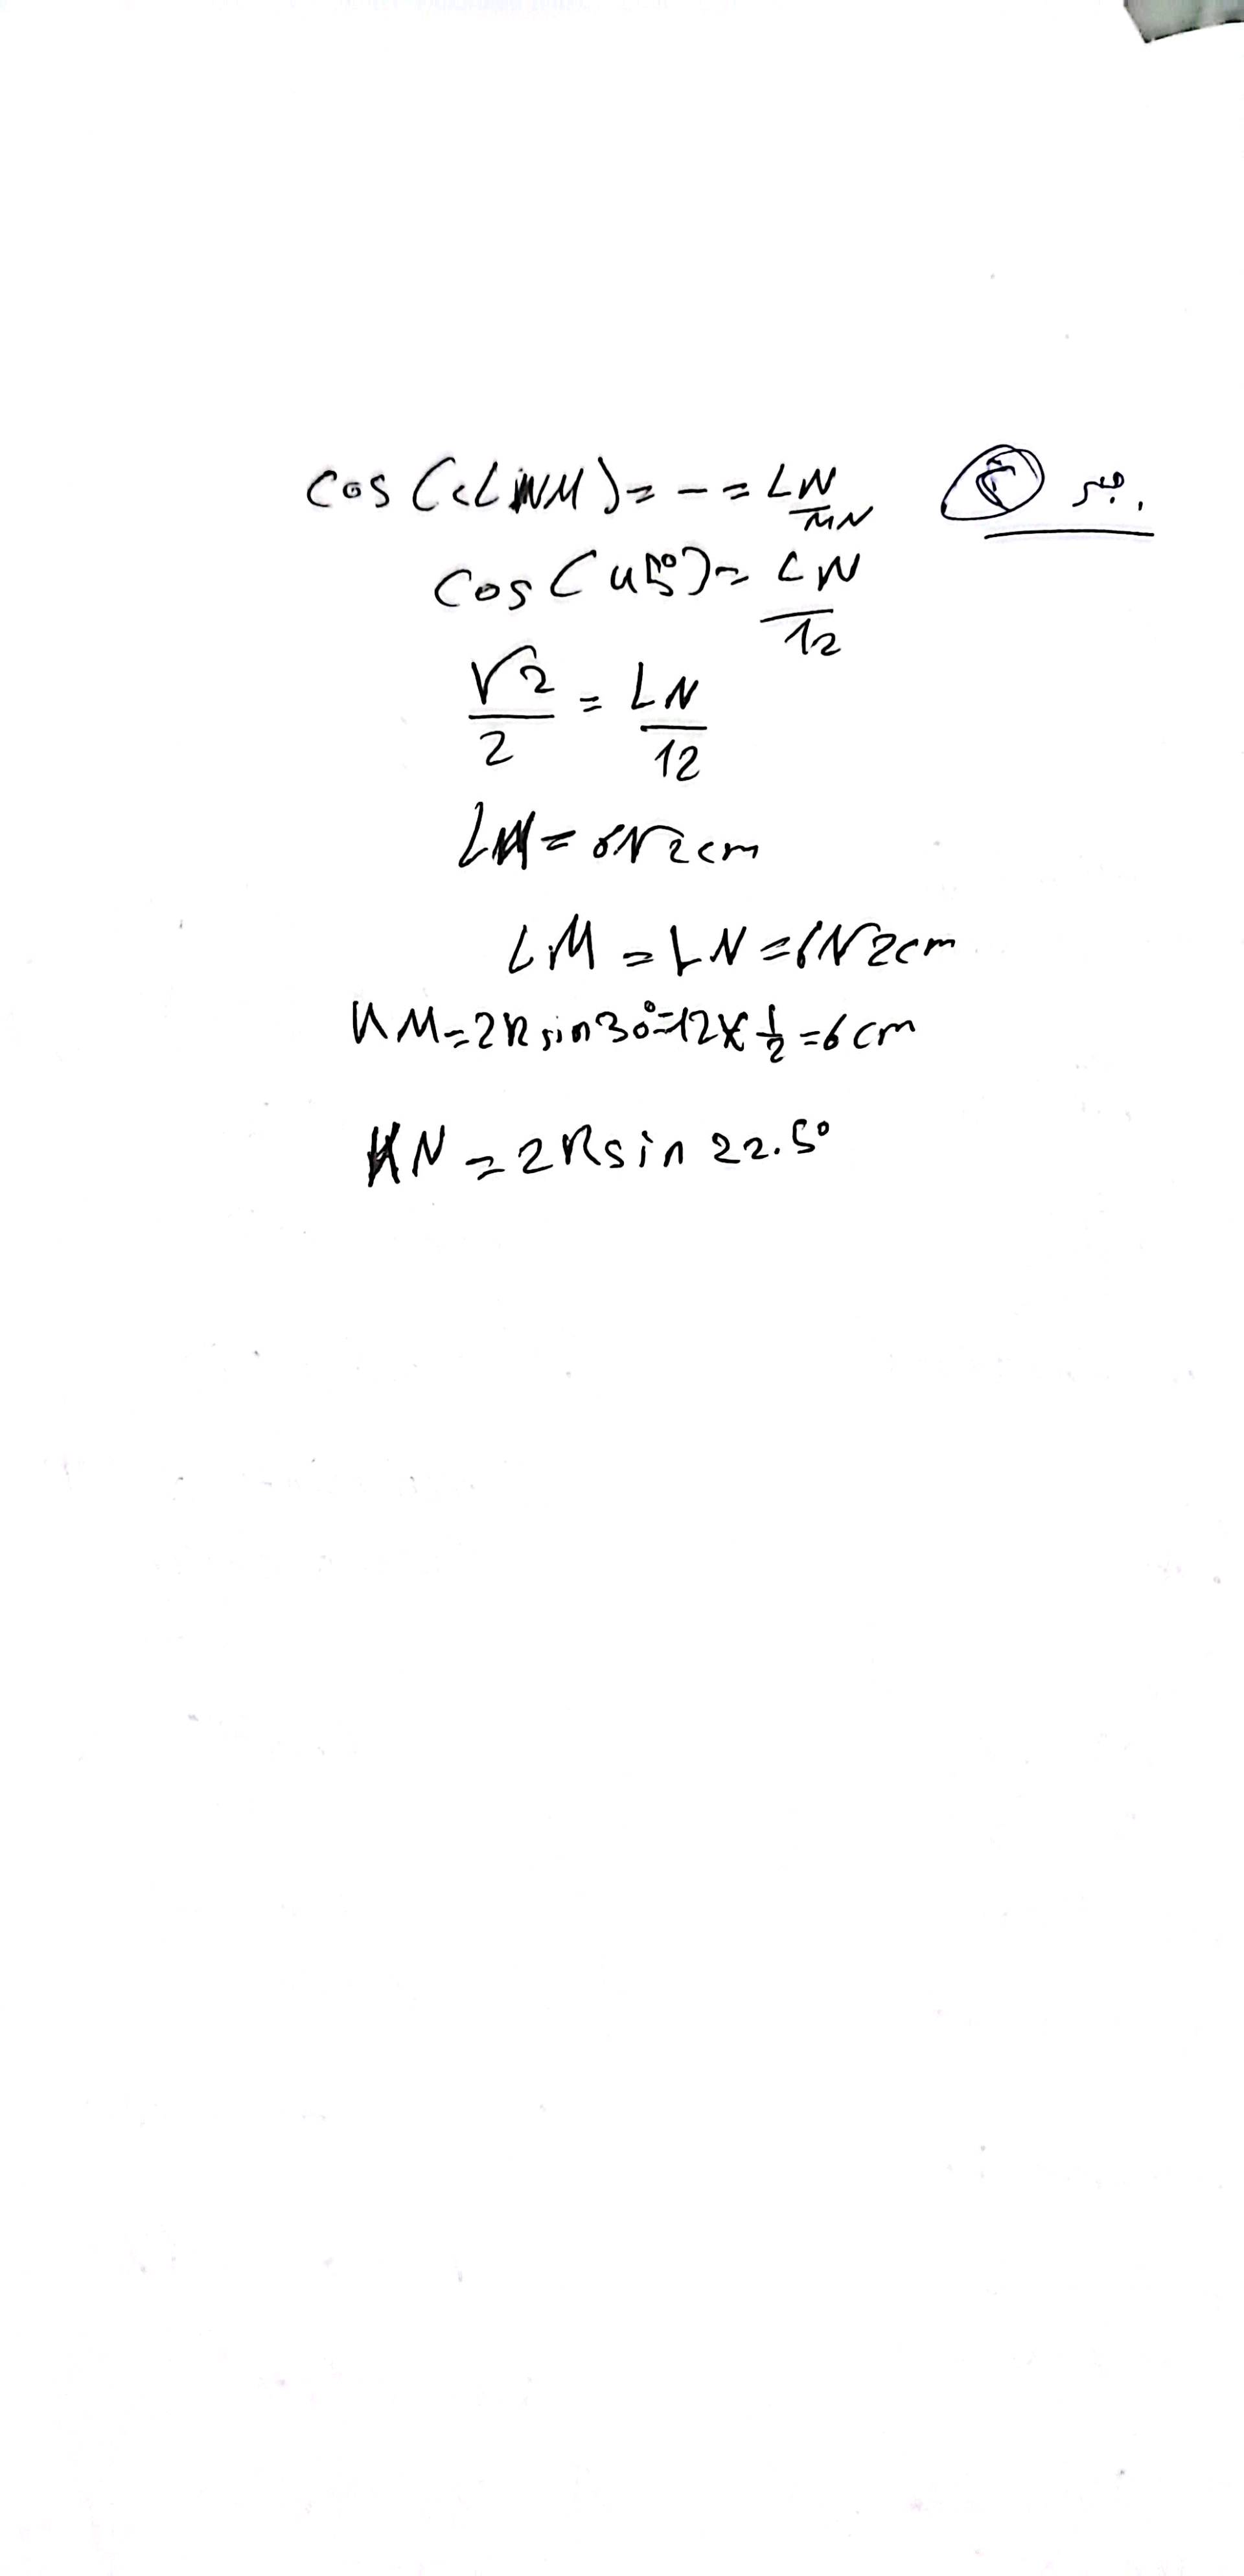 cos(<LNM) = - = LN/MN جبر.
cos(45°) = LN/12
√2/2 = LN/12
LN = 6√2cm
LM = LN = 6√2cm
KM = 2R sin30° = 12 × 1/2 = 6cm
KN = 2R sin 22.5°